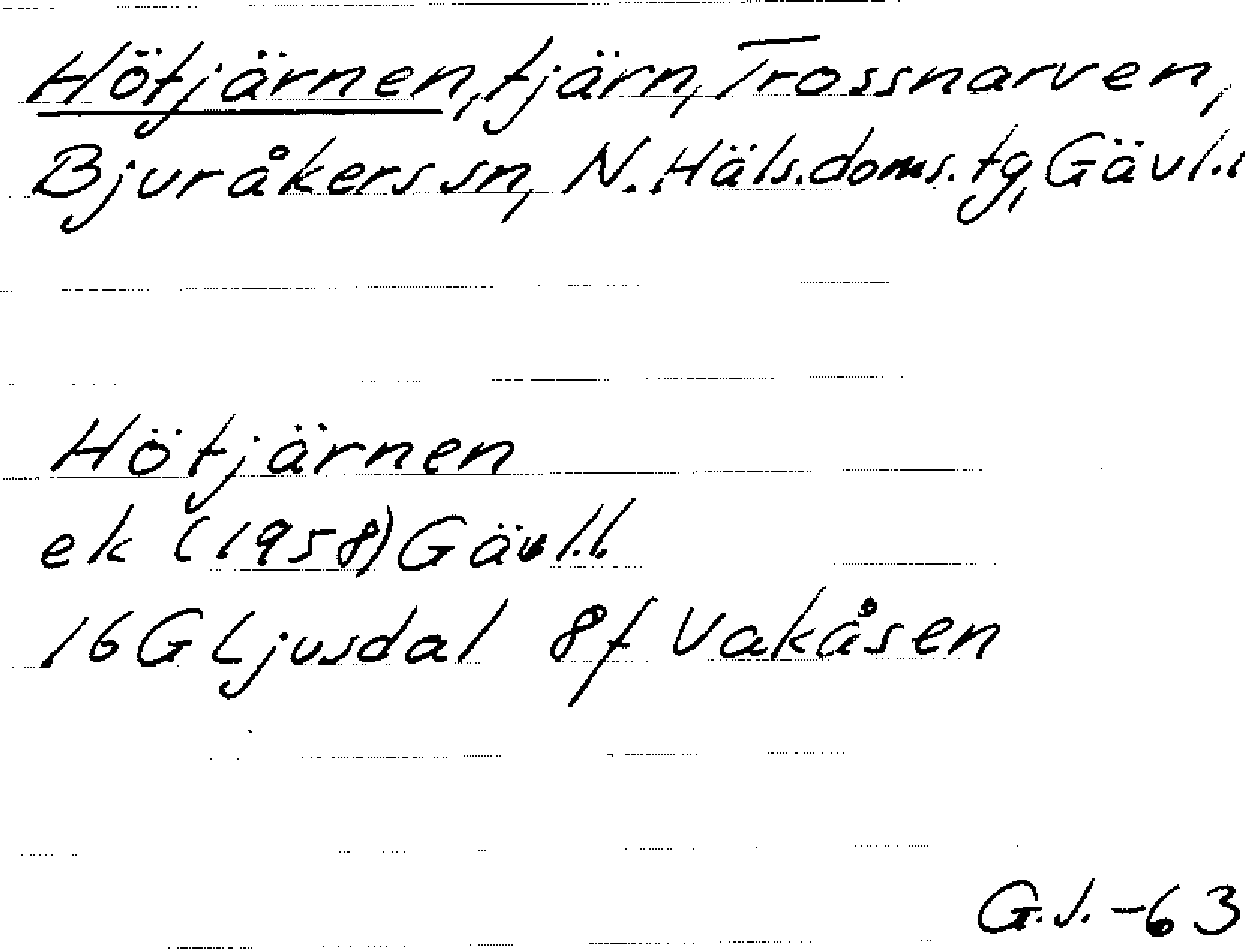 Hötjärnen, tjärn, Trossnarven,
Bjuråkers sn, N. Häls.doms.tg, Gävl.l
Hötjärnen
ek (1958) Gävl.l.
16G Ljusdal 8f Vakåsen
G.J.-63